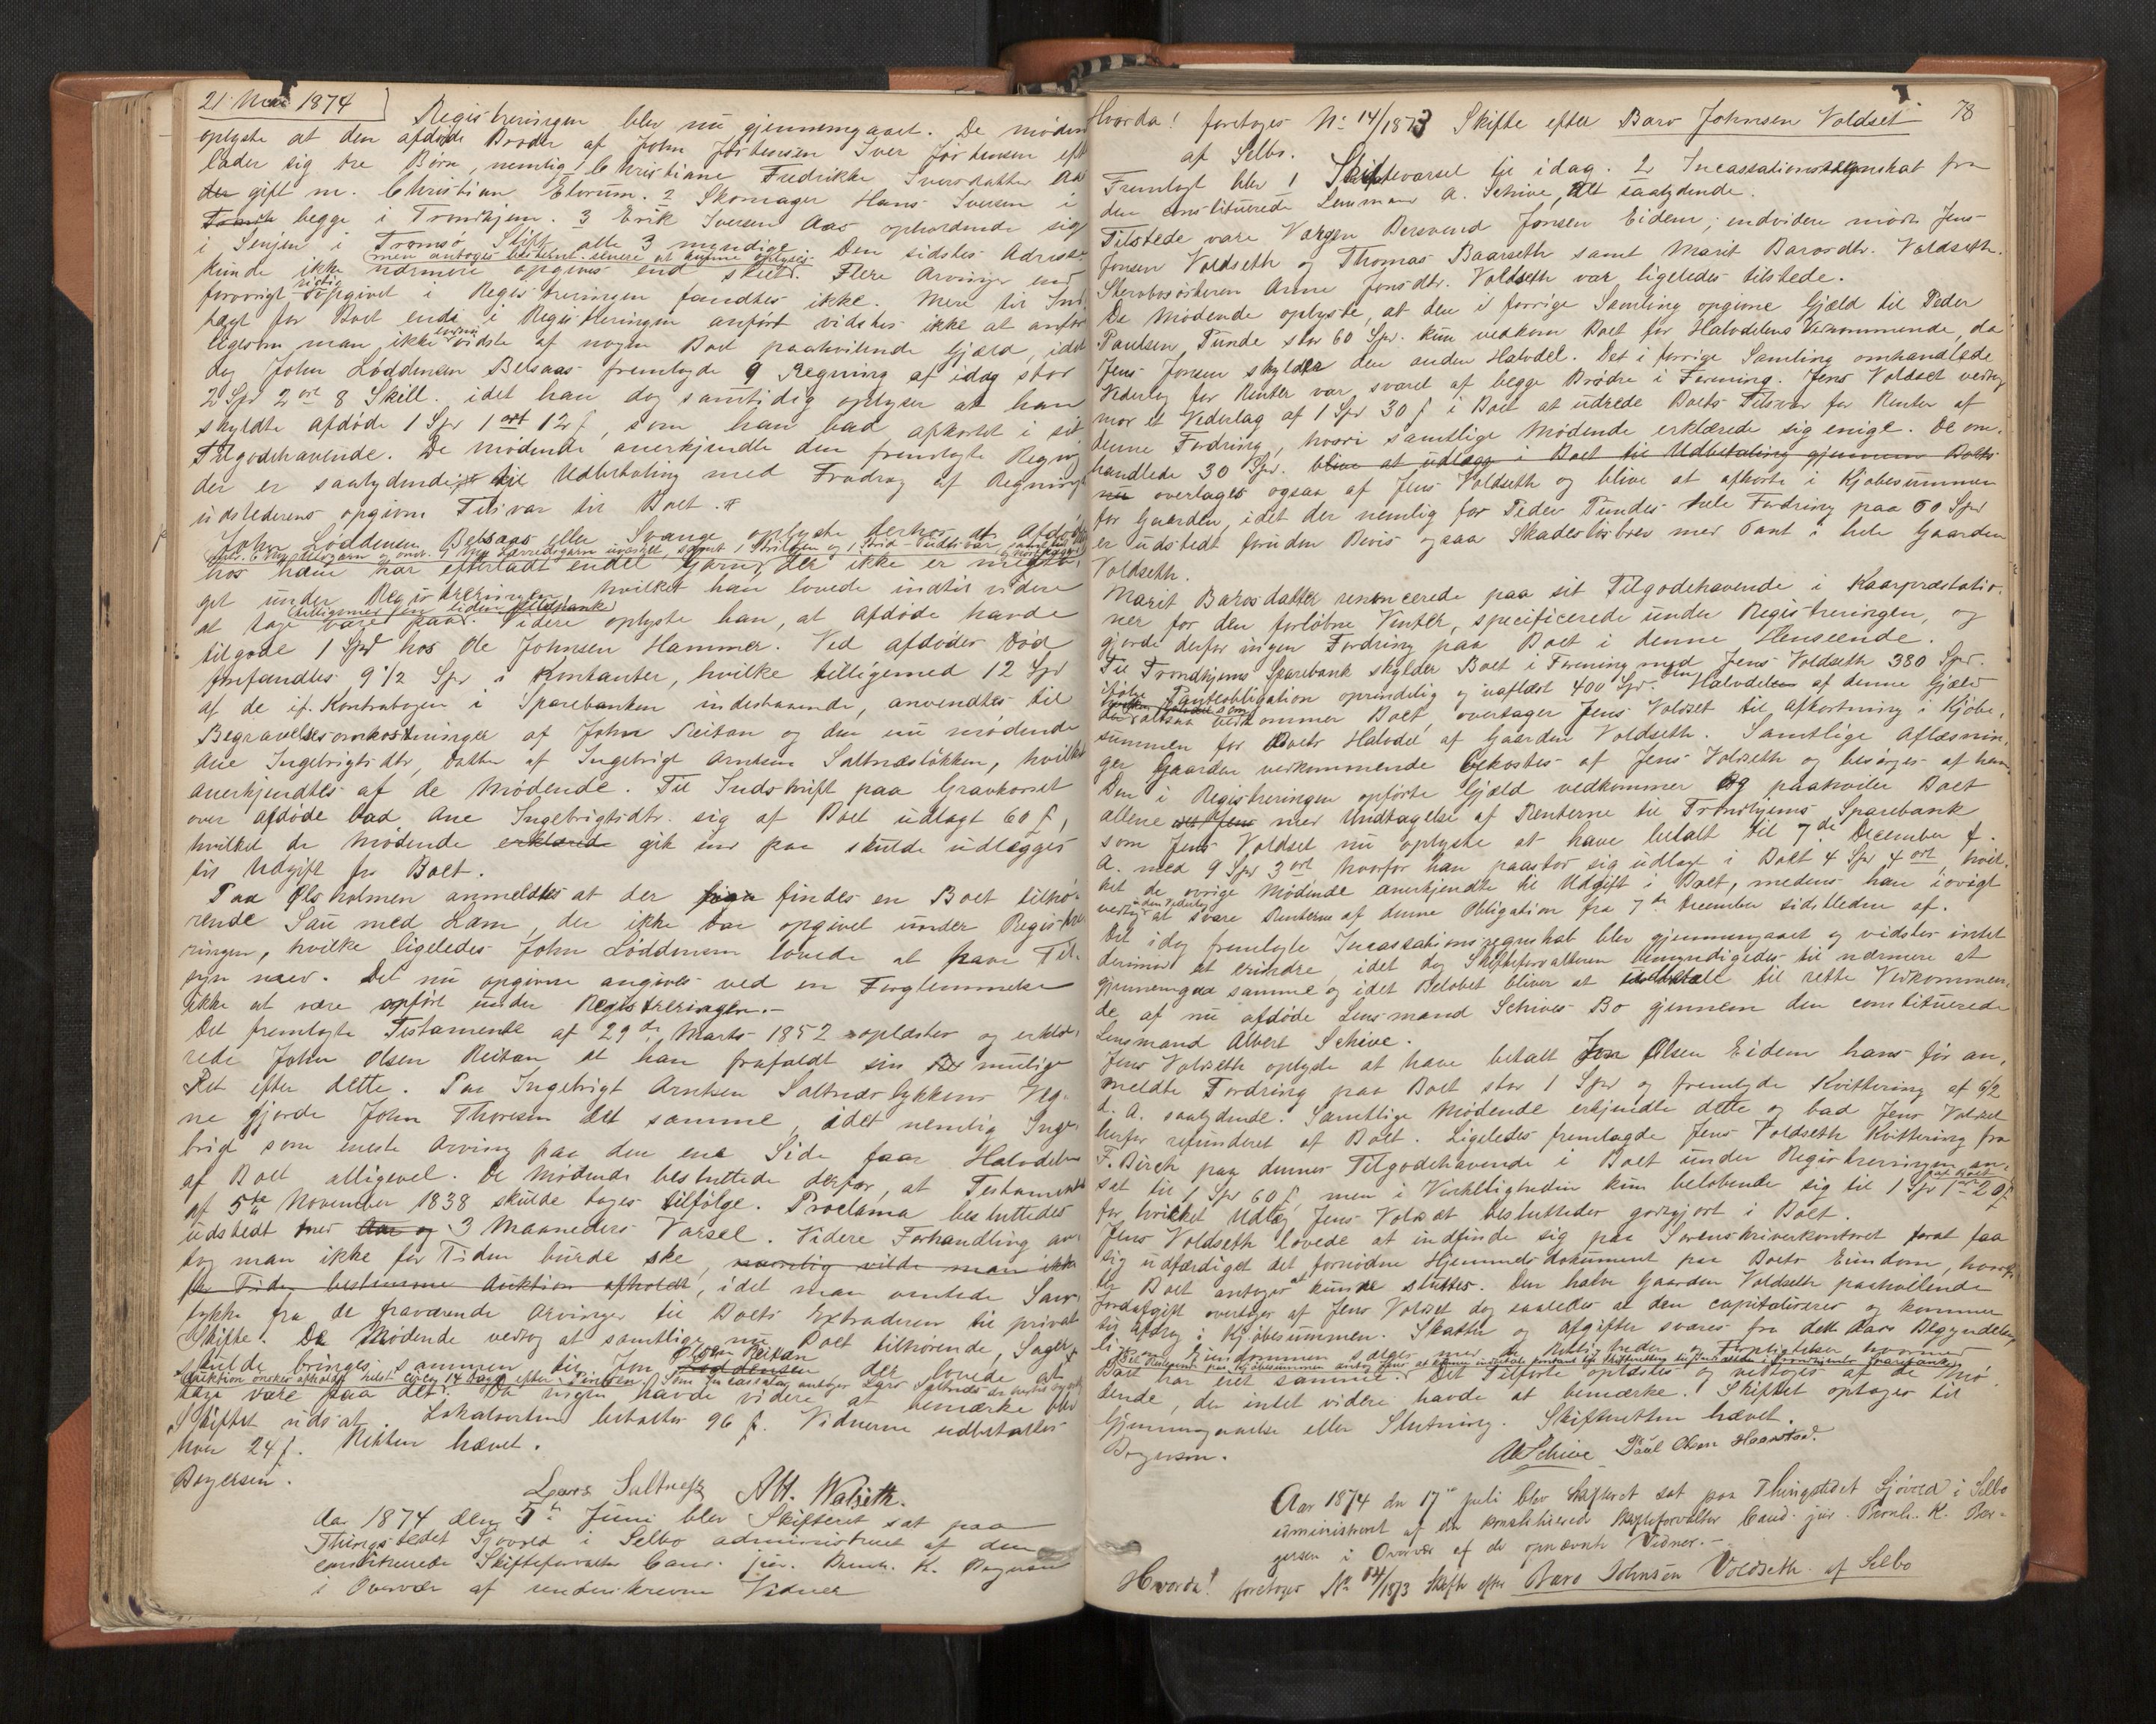 21 Mai 1874
Registreringen blev nu gjennemgaaet. De mødende
oplyste at den afdøde Broder af John Jørtensen Iver Jørtensen efter
lader sig tre Børn, nemlig 1 Christiane Fredrikke Iversdatter Aas
gift m. Christian Elvrum. 2 Skomager Hans Iversen i
begge i Trondhjem. 3 Erik Iversen Aas opholdende sig
i Senjen i Tromsø Stift alle 3 myndige. Den sidstes Adresse
men antoges bestemt senere at kunne oplyses
kunde ikke nærmere opgives end skeed. Flere Arvinger end
forøvrigt rigtig opgivet i Registreringen fandtes ikke. Mere til Ind
tægt for Boet endi i Registreringen anført vidstes ikke at anføre
ligesom man ikke endnu vidste af nogen Boet paahvilende Gjæld, idet
dog John Løddmen Belsaas fremlagde 9 Regning af idag stor
2 Spd 2 ort 8 Skill. idet han dog samtidig oplyser at han
skyldte afdøde 1 Spd 1 ort 12 ß, som han bad afkortet i sit
Tilgodehavende. De mødende anerkjendte den fremlagte Regning
der er saalydende til Udbetaling med Fradrag af Regnings
udstederens opgivne Tilsvar til Boet.
John Løddensen Belsaas eller Svange oplyste derhos at Afdøde
hos ham har efterladt endel Garn, der ikke er medta-
get under Registreringen, hvilket han lovede indtil videre
at tage vare paa. Videre oplyste han, at Afdøde havde
tilgode 1 Spd hos Ole Johnsen Hammer. Ved afdødes Død
forefandtes 9 1/2 Spd i Kontanter, hvilke tilligemed 12 Spd
af de if. Kontrabogen i Sparebanken indestaaende, anvendtes til
Begravelsesomkostninger af John Reitan og den nu mødende
Ane Ingebrigtsdtr, Datter af Ingebrigt Arntsen Saltnæsløkken, hvilket
anerkjendtes af de Mødende. Til Indskrift paa Gravkorset
over afdøde bad Ane Ingebrigtsdtr. sig af Boet udlagt 60 ß,
hvilket de Mødende erklærede gik ind paa skulde udlægges
til Udgift for Boet.
Paa Olsholmen anmeldtes at der findes en Boet tilhø-
rende Sau med Lam, der ikke var opgivet under Registre
ringen, hvilke ligeledes John Løddensen lovede at have Til-
syn med. Det nu opgivne angives ved en Forglemmelse
ikke at være opført under Registreringen.
Det fremlagte Testamente af 29de Marts 1852 oplæstes og erklæ-
rede John Olsen Reitan at han frafaldt sin mulige
Ret efter dette. Paa Ingebrigt Arntsen Saltnæsløkkens Veg-
ne gjorde John Thoresen det samme, idet nemlig Inge-
brigt som eneste Arving paa den ene Side faar Halvdelen
af Boet alligevel. De Mødende besluttede derfor, at Testamentet
af 5te November 1838 skulde tages tilfølge. Proclama besluttedes
udstedt med Aar og 3 Maaneders Varsel. Videre Forhandling an-
tog man ikke for Tiden burde ske, nemlig vilde man ikke
for Tiden bestemme Auktion afholdt, idet man ventede Sam-
tykke fra de fraværende Arvinger til Boets Extraderen til privat
Skifte. De Mødende vedtog at samtlige nu Boet tilhørende Sager
skulde bringes sammen til John Olsen Reitan der lovede at
Auktion ønskes afholdt helst circa 14 Dage efter Pintsen.
tage vare paa det. Da ingen havde videre at bemærke blev
Skiftet udsat. Lokalværten betaltes 96 ß. Vidnerne udbetaltes
hver 24 ß. Retten hævet.
Bøgersen.
Lars Saltnes AH. Walseth.
Aar 1874 den 5te Juni blev Skifteret sat paa
Thingstedet Sjøvold i Selbo administreret af den
constituerede Skifteforvalter Cand. jur. Bernh. K. Bøgersen
i Overvær af underskrevne Vidner
78
Hvorda! foretoges No 14/1873 Skifte efter Baro Johnsen Voldset
af Selbo.
Fremlagt blev 1 Skiftevarsel til idag. 2 Incassationsregnskab fra
den constituerede Lensmand A. Schive, Alt saalydende.
Tilstede vare Værgen Bersvend Jonsen Eidem; endvidere mødte Jens
Jonsen Voldseth og Thomas Baarseth samt Marit Barosdtr. Voldseth.
Stervbosøsteren Anne Jonsdtr. Voldseth var ligeledes tilstede.
De Mødende oplyste, at den i forrige Samling opgivne Gjæld til Peder
Paulsen Tunde stor 60 Spd. kun vedkom Boet for Halvdelens Vedkommende, da
Jens Jonsen skylder den anden Halvdel. Det i forrige Samling omhandlede
Vederlag for Renter var svaret af begge Brødre i Forening. Jens Voldset vedtog
mod et Vederlag af 1 Spd 30 ß i Boet at udrede Boets Tilsvar for Renter af
denne Fordring, hvori samtlige Mødende erklærede sig enige. De om-
handlede 30 Spd. blive at udlægge i Boet til Udbetaling gjennem Boets
overtages ogsaa af Jens Voldseth og blive at afkorte i Kjøbesummen
for Gaarden, idet der nemlig for Peder Tundes hele Fordring paa 60 Spd
er udstedt foruden Bevis ogsaa Skadesløsbrev med Pant i hele Gaarden
Voldseth.
Marit Barosdatter renoncerede paa sit Tilgodehavende i Kaarpræstatio-
ner for den forløbne Vinter, specificerede under Registreringen, og
gjorde derfor ingen Fordring paa Boet i denne Henseende.
Til Trondhjems Sparebank skylder Boet i Forening med Jens Voldseth 380 Spd.
ifølge Panteobligation oprindelig og uaflæst 400 Spd. Den Halvdel af denne Gjæld
der altsaa vedkommer Boet, overtager Jens Voldset til Afkortning i Kjøbe-
summen for Boets Halvdel af Gaarden Voldseth. Samtlige Aflæsnin-
ger Gaarden vedkommende bekostes af Jens Voldseth og besørges af ham.
Den i Registreringen opførte Gjæld vedkommer og paahviler Boet
allene med Undtagelse af Renterne til Trondhjems Sparebank
som Jens Voldset nu oplyste at have betalt til 7de December f.
A. med 9 Spd 3 ort hvorfor han paastod sig udlagt i Boet 4 Spd 4 ort, hvil-
ket de øvrige Mødende anerkjendte til Udgift i Boet, medens han iøvrigt
vedtog uden Vederlag at svare Renterne af denne Obligation fra 7de December sidstleden af.
Det idag fremlagte Incassationsregnskab blev gjennemgaaet og vidstes intet
derimod at erindre, idet dog Skifteforvalteren bemyndigedes til nærmere at
gjennemgaa samme og idet Beløbet bliver at udbetale til rette Vedkommen-
de af nu afdøde Lensmand Schives Bo gjennem den constituerede
Lensmand Albert Schive.
Jens Voldseth oplyste at have betalt Jon Olsen Eidem hans før an-
meldte Fordring paa Boet stor 1 Spd og fremlagde Kvittering af 6/2
d. A. saalydende. Samtlige Mødende erkjendte dette og bad Jens Voldset
herfor refunderet af Boet. Ligeledes fremlagde Jens Voldseth Kvittering fra
F. Birch paa dennes Tilgodehavende i Boet under Registreringen an-
sat til 1 Spd 60 ß men i Virkeligheden kun beløbende sig til 1 Spd 1 ort 20 ß
for hvilket Udlæg Jens Voldset besluttedes godtgjort i Boet.
Jens Voldseth lovede at indfinde sig paa Sorenskriverkontoret forat faa
sig udfærdiget det fornødne Hjemmelsdokument paa Boets Eiendom, hvorefter
Boet antoges at kunne sluttes. Den halve Gaarden Voldseth paahvilende
Jordafgift overtages af Jens Voldset dog saaledes at den capitaliseres og kommer
til Afdrag i Kjøbesummen. Skatter og Afgifter svares fra dette Aars Begyndelse,
ligesom Eiendommen sælges med de Rettigheder og Forpligtelser hvormed
Boet har eiet samme. Det Tilførte oplæstes og vedtoges af de Mø-
dende, der intet videre havde at bemærke. Skiftet optages til
Gjennemgaaelse eller Slutning. Skifteretten hævet.
Bøgersen.
A Schive Paul Olsen Haarstad.
Aar 1874 den 17de Juli blev Skifteret sat paa Thingstedet Sjøvold i Selbo
administreret af den konstituerede Skifteforvalter Cand. jur. Bernh. K. Bøe-
gersen i Overvær af de opnævnte Vidner.
Hvorda! foretoges No 14/1873 Skifte efter Baro Johnsen Voldseth af Selbo